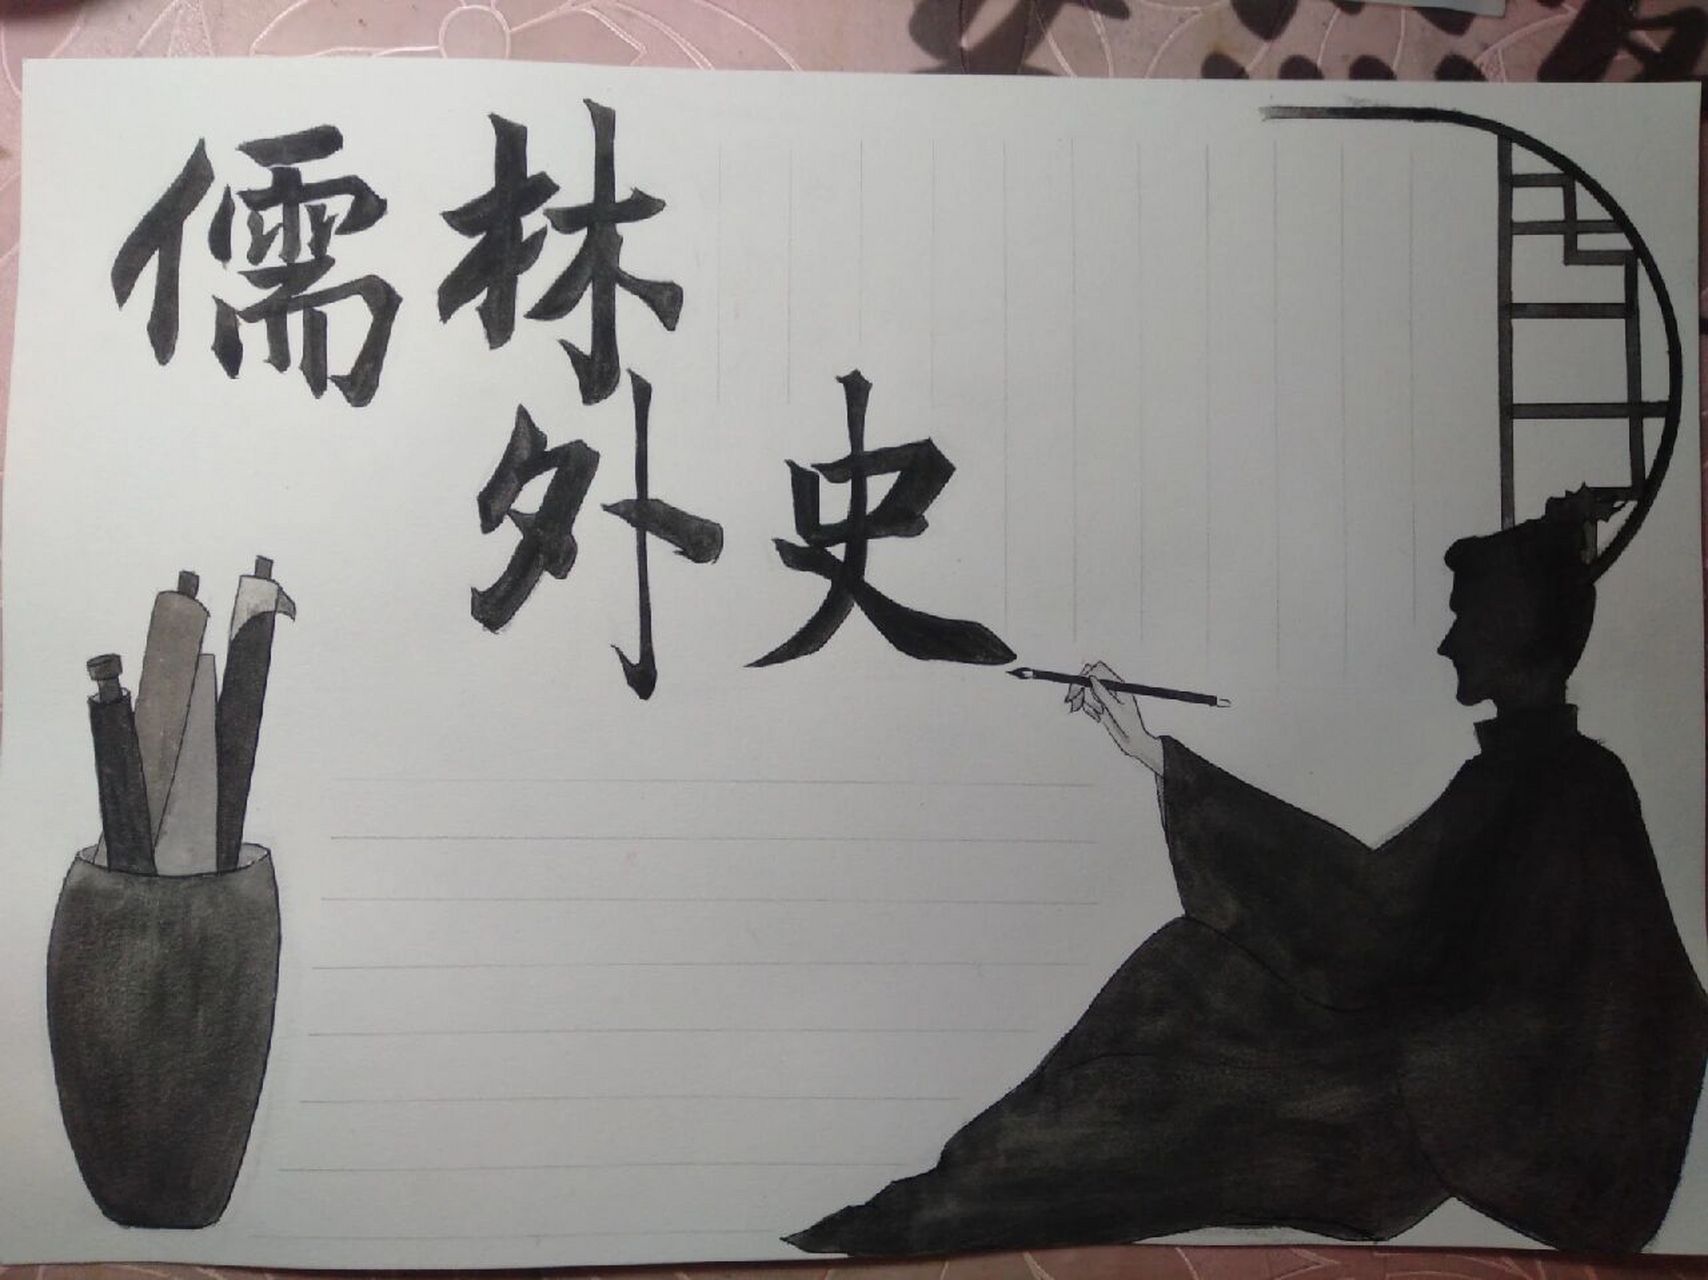 儒林
外史